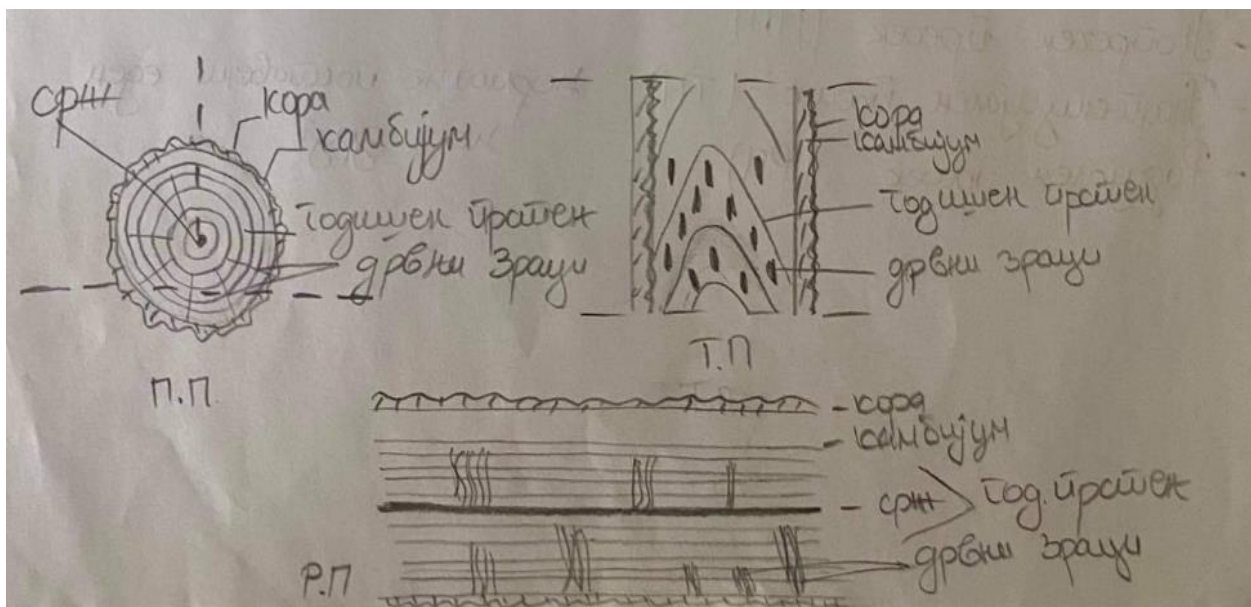 срж
кора
камбијум
годишен прстен
дрвни зраци
П.П
кора
камбијум
годишен прстен
дрвни зраци
Т.П
кора
камбијум
срж
год. прстен
дрвни зраци
Р.П